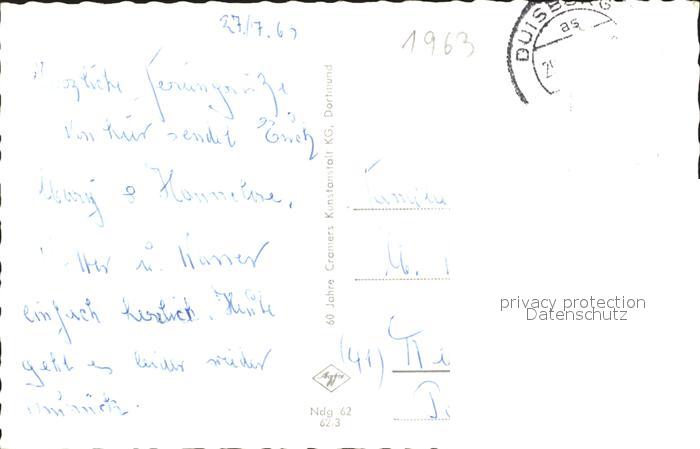 27/7.63
1963
DUISBURG
as
Herzliche Feriengrüße
von hier sendet Euch
Mary & Hannelore.
Wetter u. Wasser
einfach herrlich. Heute
geht es leider wieder
zurück.
60 Jahre Cramers Kunstanstalt KG, Dortmund
Familie
(41)
Agfa
Ndg 62
62/3
privacy protection
Datenschutz